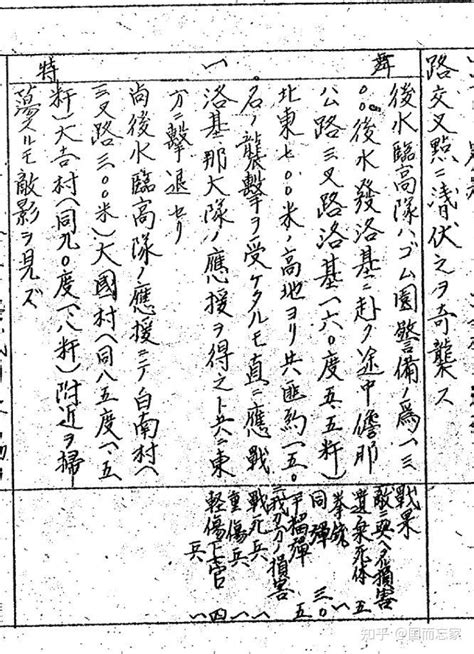 路交叉點ニ潜伏之ヲ奇襲ス
舞一特
後水臨高隊ハゴム園警備ノ為一三
〇〇後水發洛基ニ赴ク途中儋那
公路三叉路洛基一六〇度五、五粁)
北東七〇〇米ノ高地ヨリ共匪約一五〇
名ノ襲撃ヲ受ケタルモ直ニ應戰
洛基那大隊ノ應援ヲ得之ト共ニ東
方ニ撃退セリ
尚後水臨高隊ノ應援ニテ白南村(
三叉路三〇〇米)大國村(同八五度一、五
粁)大吉村(同九〇度一、八粁)附近ヲ掃
蕩スルモ敵影ヲ見ズ
戰果
敵ニ與ヘタル損害
遺棄死体 五
拳銃 一
同彈 三〇
手榴彈 五
我方ノ損害
戰死兵 一
重傷兵 四
軽傷上官兵 一一
知乎 @国而忘家